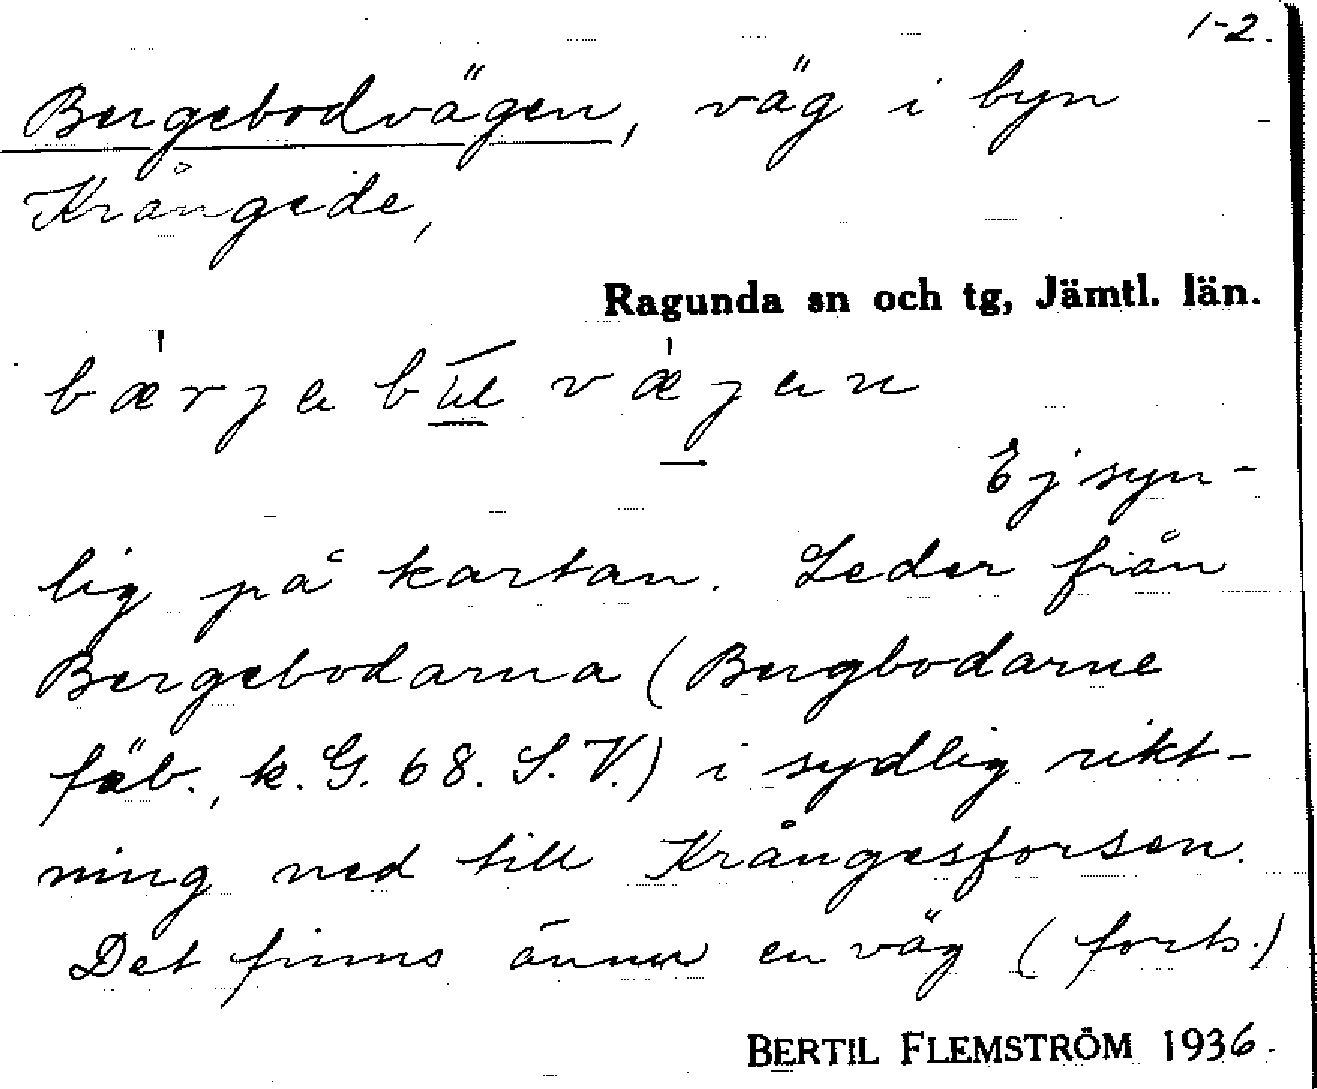 1-2.
Bergebodvägen, väg i byn
Krångede,
Ragunda sn och tg, Jämtl. län.
Ej syn-
lig på kartan. Leder från
Bergebodarna (Bergbodarne
fäb., k. G. 68. S. V.) i sydlig rikt-
ning ned till Krångesforsen.
Det finns ännu en väg (forts.)
BERTIL FLEMSTRÖM 1936.